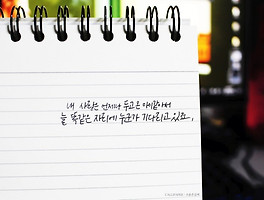 내 사랑은 언제나 두고온 아이같아서
늘 똑같은 자리에 누군가 기다리고 있죠,